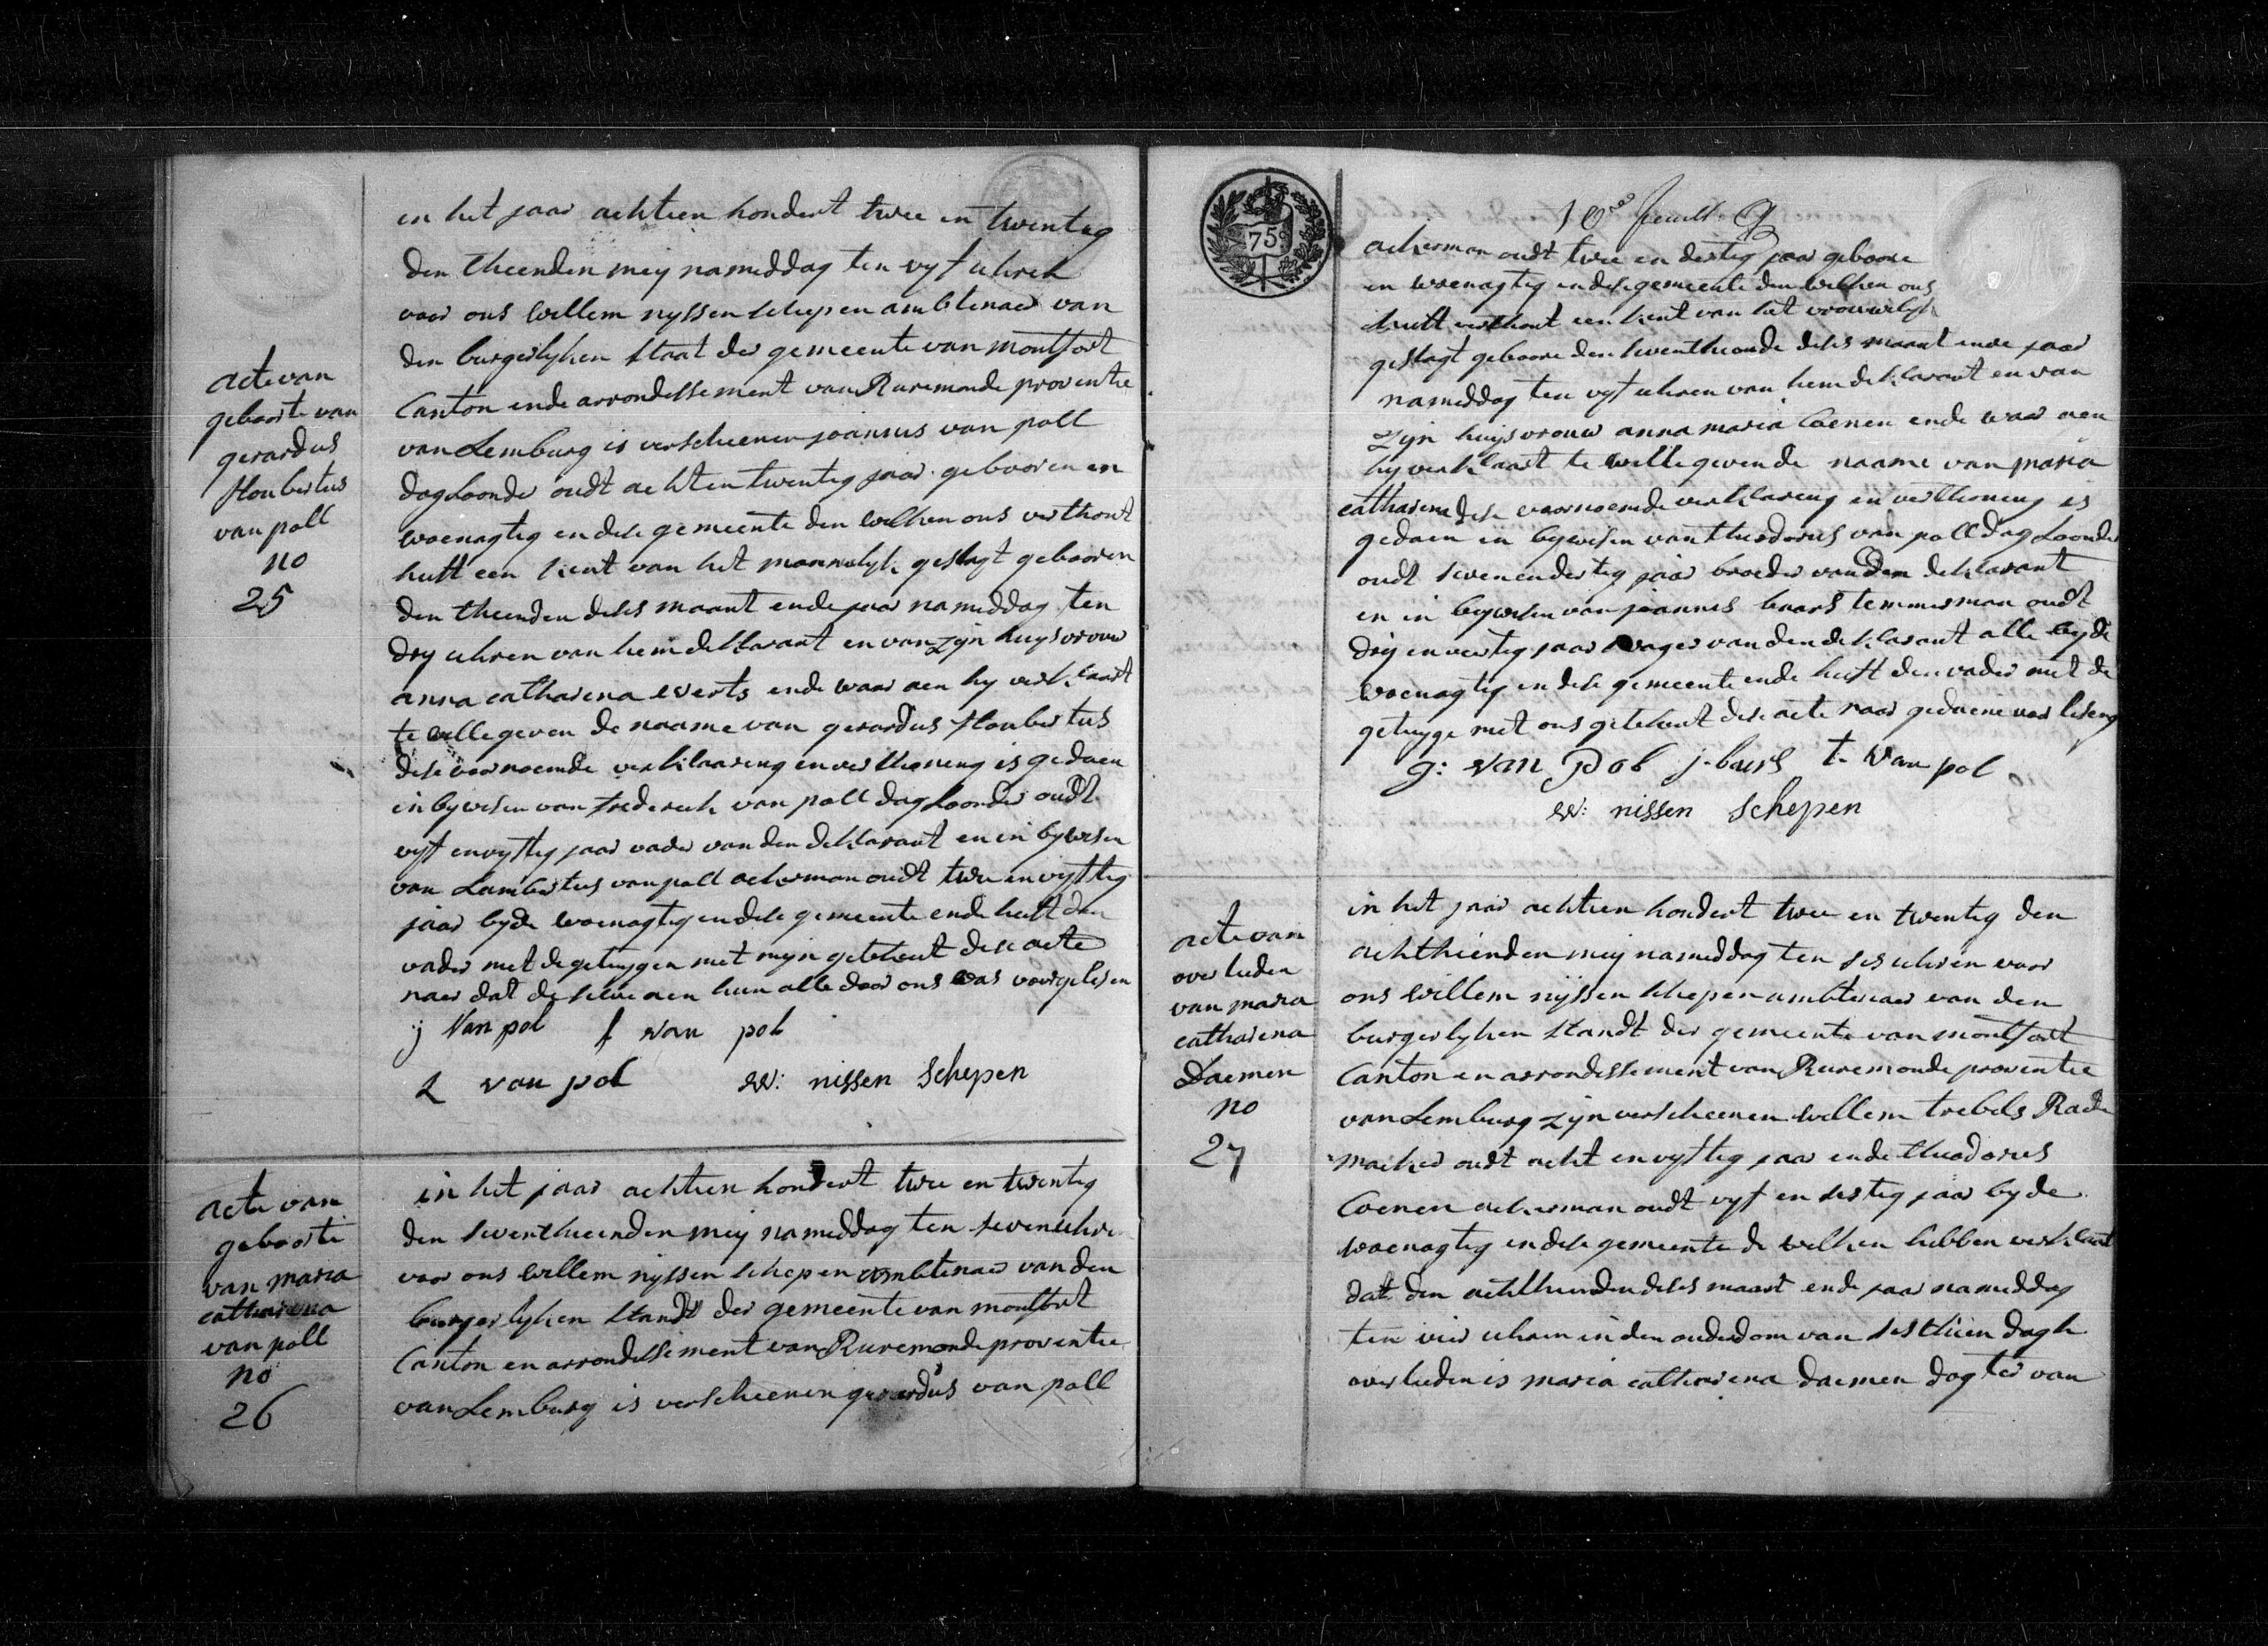 acte van
geboorte van
gerardus
Houbertus
van poll
no
25
in het jaar achtien hondert twee en twenteg
den theenden meij nameddag ten vyf uhren
voor ons Willem nyssen schepen ambtenaer van
den burgerlyken staat der gemeente van montfort
Canton ende arrondessement van Ruremonde proventie
van Lemburg is verscheenen joannus van poll
dagloonder oudt acht en twenteg jaar gebooren en
woenagteg en dese gemeente den welken ons verthont
heeft een kent van het mannelyk geslagt gebooren
den theenden deses maant ende jaar nameddag ten
dry uhren van hem deklarant en van zyn huysvrouw
anna catharena everts ende waar aen hy verklaart
te wellegeven de naame van gerardus Houbertus
dese voornoemde verklaareng en verthoneng is gedaen
in bywesen van frederick van poll dagloonder oudt
vyf en vyfteg jaar vader van den deklarant en in bywesen
van Lambertus van poll ackerman oudt twee en vyfteg
jaar byde woenagteg en dese gemeente ende heeft den
vader met de getuygen met myn getekent dese acte
naer dat deselve aen hun alle door ons was voorgelesen
j Van pol f van pol
L van pol w: nissen Schepen
acte van
geboorte
van maria
catharena
van poll
no
26
in het jaar achtien hondert twee en twenteg
den seventheenden meij nameddag ten seven uhre
voor ons Willem nyssen schepen ambtenaer van den
burgerlyken standt der gemeente van montfort
Canton en arrondessement van Ruremonde proventie
van Lemburg is verscheenen gerardus van poll
75
10
ackerman oudt twee en derteg jaar geboore
en woenagteg en dese gemeente den welken ons
heeft verthont een kent van het vrouwelyk
geslagt geboore den seventheende deses maant ende jaar
nameddag ten vyf uhren van hem deklarant en van
zyn huysvrouw anna maria Coenen ende waar aen
hy verklaart te wellegeven de naame van maria
catharena dese voornoemde verklareng en verthoneng is
gedaen in bywesen van theodorus van poll dagloonder
oudt seven en derteg jaar broeder van den deklarant
en in bywesen van joannes baars temmerman oudt
dry en veerteg jaar swager van den deklarant alle byde
woenagteg en dese gemeente ende heeft den vader met de
getuyge met ons getekent dese acte naar gedaene voorleseng
g: van Pol j. baers t. van pol
w: nissen Schepen
acte van
overleeden
van maria
catharena
Daemen
no
27
in het jaar achtien hondert twee en twenteg den
achthienden meij nameddag ten ses uhren voor
ons Willem nyssen schepen ambtenaer van den
burgerlyken standt der gemeente van montfort
Canton en arrondessement van Ruremonde proventie
van Lemburg zyn verscheenen Wellem trebels Rade
macher oudt acht en vyfteg jaar ende theodorus
Coenen ackerman oudt vyf en sesteg jaar byde
woenagteg en dese gemeente de welken hebben verklaart
dat den achthienden deses maant ende jaar nameddag
ten vier uhren in den ouderdom van sesthien dagh
overleeden is maria catharena daemen dogter van